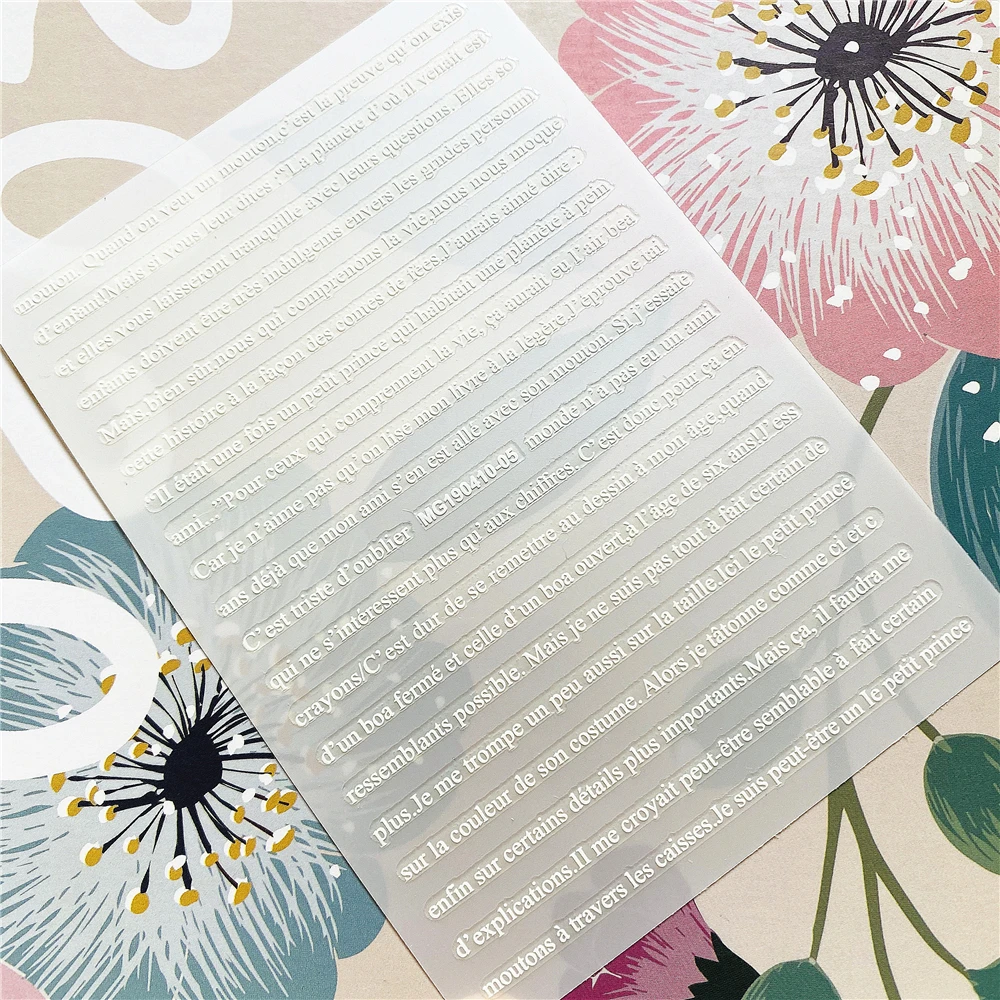 mouton. Quand on veut un mouton,c'est la preuve qu'on exis
d'enfant!Mais si vous leur dites:“La planète d'où il venait est
et elles vous laisseront tranquille avec leurs questions. Elles so
enfants doivent être très indulgents envers les grandes personn
Mais,bien sûr,nous qui comprenons la vie,nous nous moque
cette histoire à la façon des contes de fées.J'aurais aimé dire :
“Il était une fois un petit prince qui habitait une planète à pein
ami...”Pour ceux qui comprennent la vie, ça aurait eu l'air bea
Car je n'aime pas qu'on lise mon livre à la légère.J'éprouve tal
ans déjà que mon ami s'en est allé avec son mouton. Si j'essaie
C'est triste d'oublier MG190410-05 monde n'a pas eu un ami.
qui ne s'intéressent plus qu'aux chiffres. C'est donc pour ça en
crayons/C'est dur de se remettre au dessin à mon âge,quand
d'un boa fermé et celle d'un boa ouvert,à l'âge de six ans!J'ess
ressemblants possible. Mais je ne suis pas tout à fait certain de
plus.Je me trompe un peu aussi sur la taille.Ici le petit prince
sur la couleur de son costume. Alors je tâtonne comme ci et c
enfin sur certains détails plus importants.Mais ça, il faudra me
d'explications.II me croyait peut-être semblable à fait certain
moutons à travers les caisses.Je suis peut-être un le petit prince